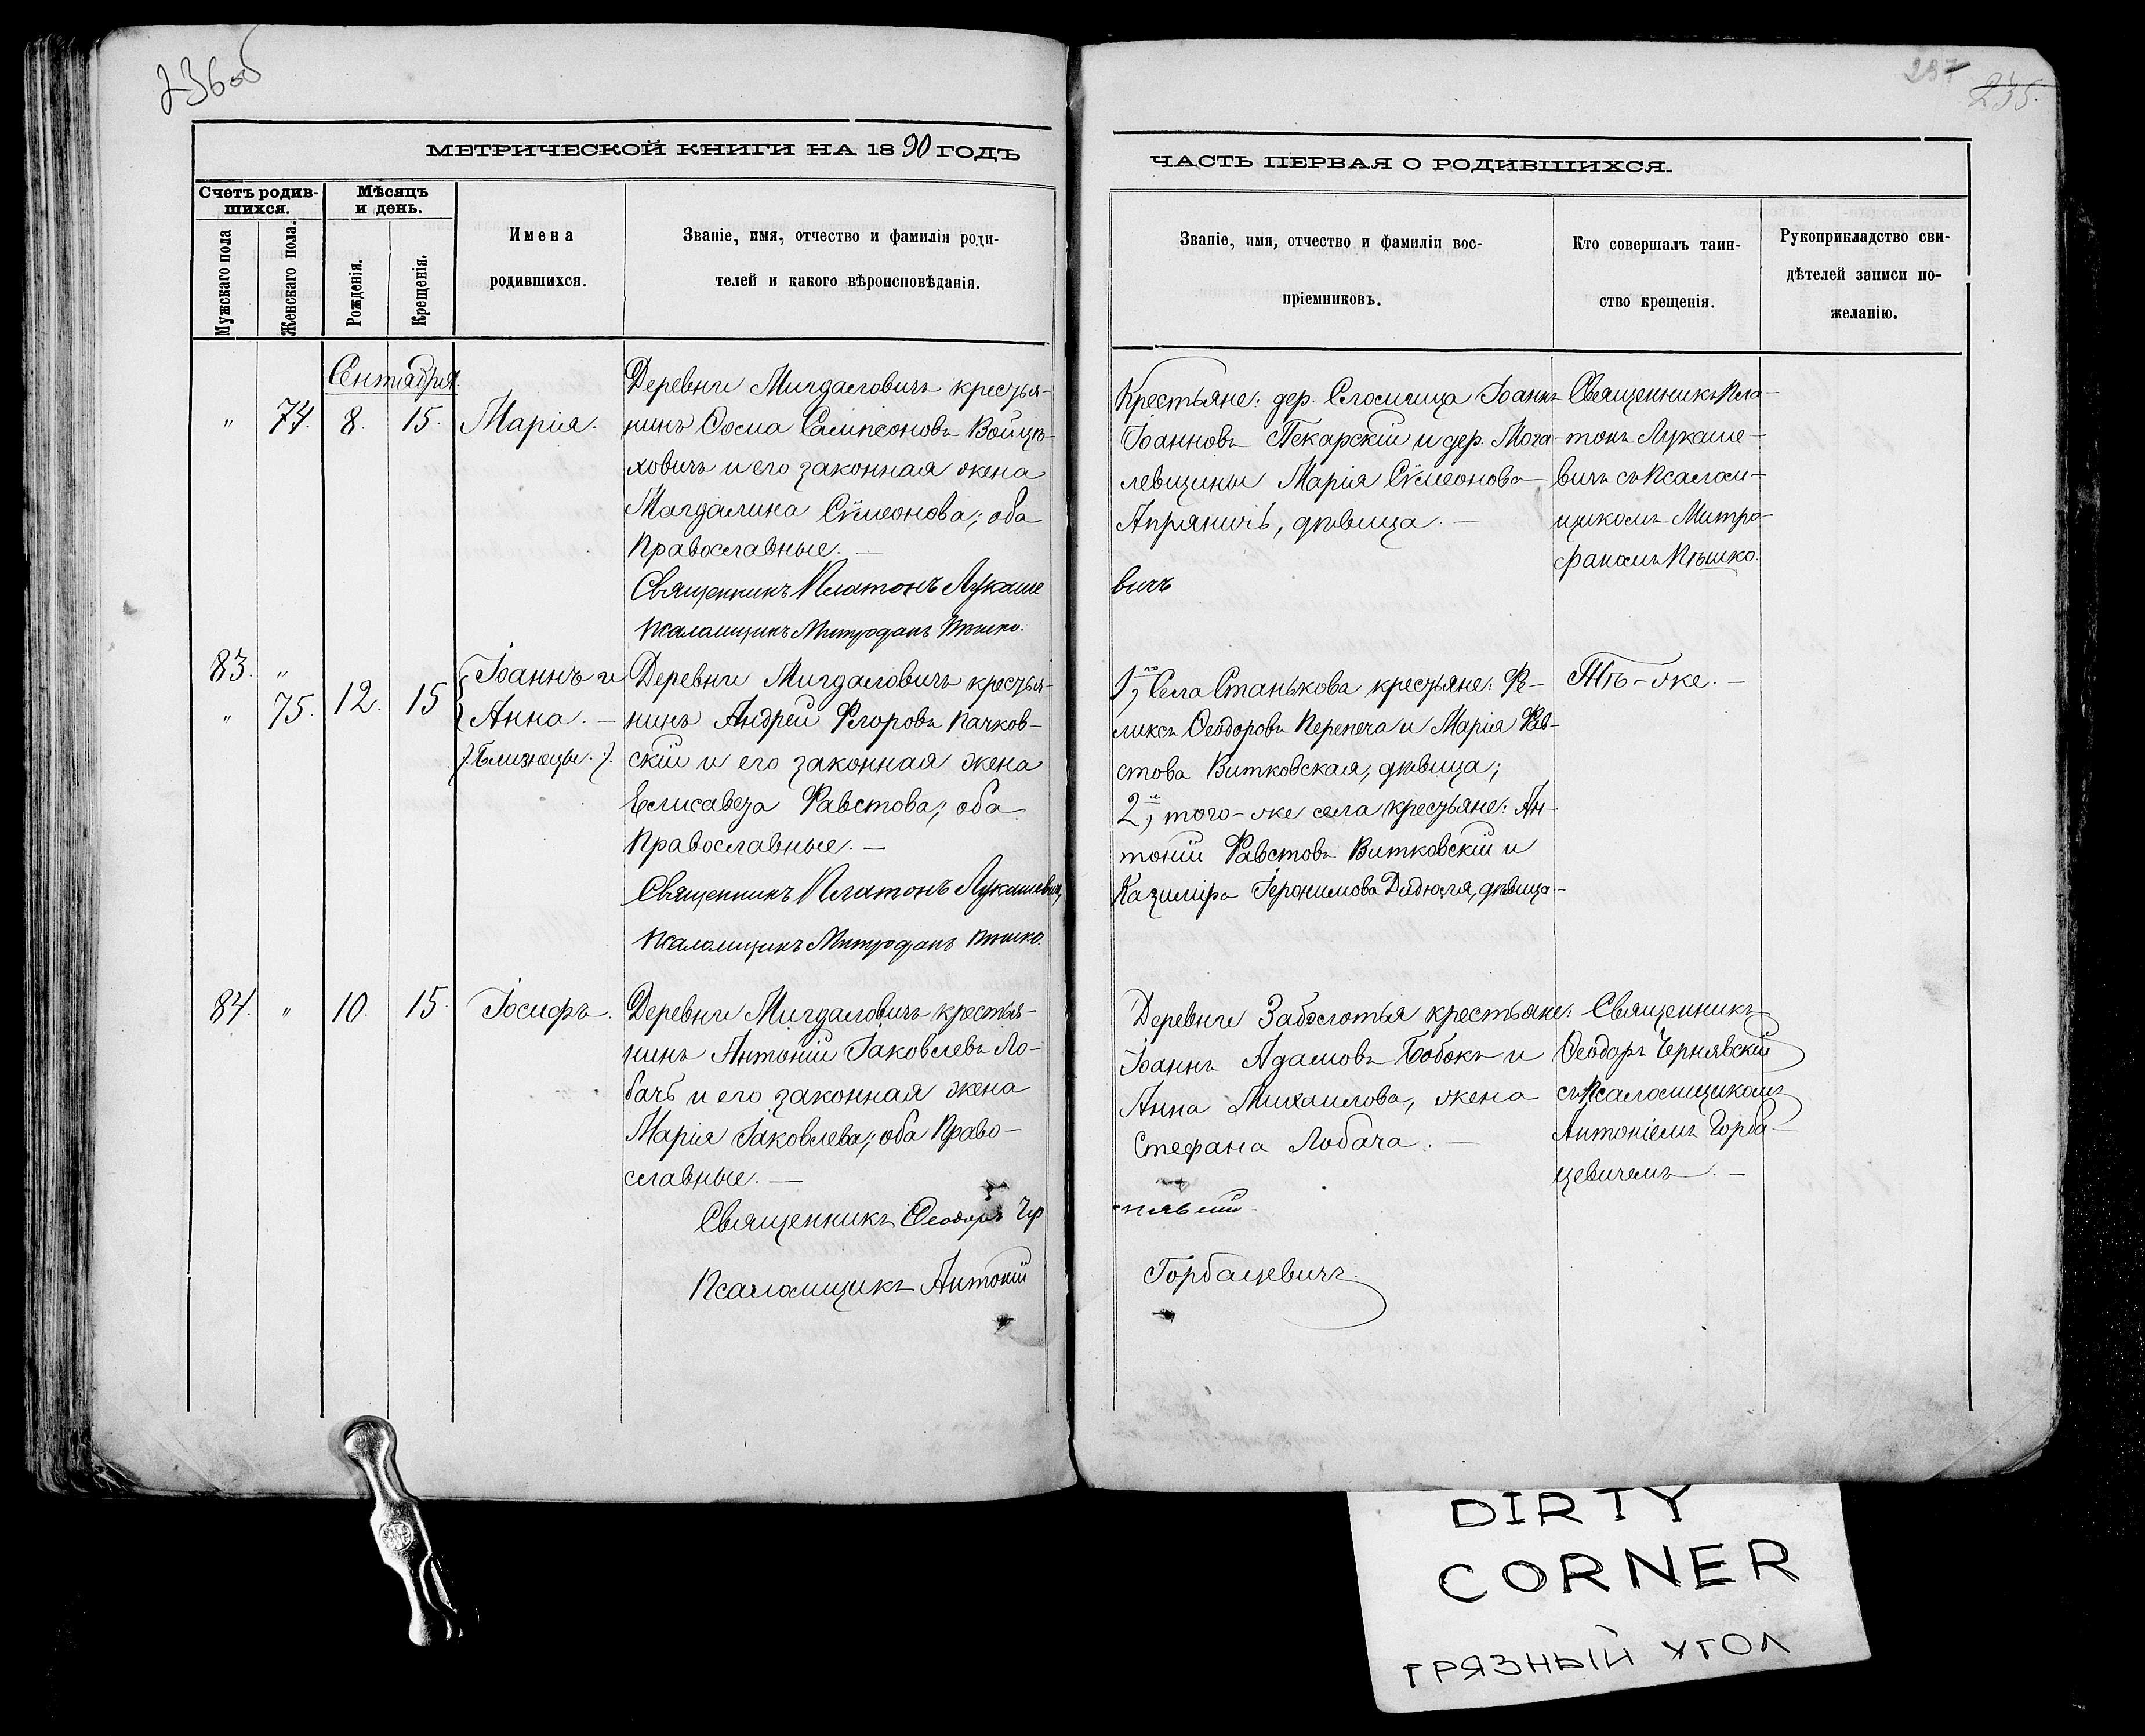 236об
237
235.
МЕТРИЧЕСКОЙ КНИГИ НА 1890 ГОДЪ
ЧАСТЬ ПЕРВАЯ О РОДИВШИХСЯ.
Счетъ родив-
шихся.
Мужскаго пола
Женскаго пола.
Мѣсяцъ
и день.
Рожденія.
Крещенія.
Имена
родившихся.
Званіе, имя, отчество и фамилія роди-
телей и какого вѣроисповѣданія.
Званіе, имя, отчество и фамиліи вос-
пріемниковъ.
Кто совершалъ таин-
ство крещенія.
Рукоприкладство сви-
дѣтелей записи по-
желанію.
Сентября.
" 74. 8. 15. Марія.
Деревни Мигдаловичъ крестья-
нинъ Ѳома Сампсоновъ Войцѣ-
ховичъ и его законная жена
Магдалина Сѵмеонова; оба
Православные. —
Священникъ Платонъ Лукаше
вичъ
Псаломщикъ Митрофанъ Пѣшко.
Крестьяне: дер. Слобица Іоаннъ
Іоанновъ Пекарскій и дер. Мога-
левщины Марія Сѵмеонова
Апряничъ, дѣвица. —
Священникъ Пла-
тонъ Лукаше-
вичъ съ Псалом-
щикомъ Митро-
фаномъ Пѣшко.
83. "
" 75. 12. 15
Іоаннъ и
Анна. —
/:Близнецы:/.
Деревни Мигдаловичъ крестья-
нинъ Андрей Егоровъ Пачков-
скій и его законная жена
Елисавета Фавстова; оба
Православные. —
Священникъ Платонъ Лукашевичъ
Псаломщикъ Митрофанъ Пѣшко.
1го, Села Станькова крестьяне: Фе-
ликсъ Ѳеодоровъ Перепеча и Марія Фав-
стова Витковская, дѣвица;
2й, того-же села крестьяне: Ан-
тоній Фавстовъ Витковскій и
Казиміра Іеронимова Дидюля, дѣвица. —
Тѣ-же. —
84. " 10. 15. Іосифъ.
Деревни Мигдаловичъ крестья-
нинъ Антоній Іаковлевъ Ло-
бачъ и его законная жена
Марія Іаковлева; оба Право-
славные. —
Священникъ Ѳеодоръ Чер
нявскій.
Псаломщикъ Антоній
Горбацевичъ.
Деревни Заболотья крестьяне:
Іоаннъ Адамовъ Бобокъ и
Анна Михаилова, жена
Стефана Лобача. —
Священникъ
Ѳеодоръ Чернявскій
съ Псаломщикомъ
Антоніемъ Горба-
цевичемъ. —
DIRTY
CORNER
ГРЯЗНЫЙ УГОЛ